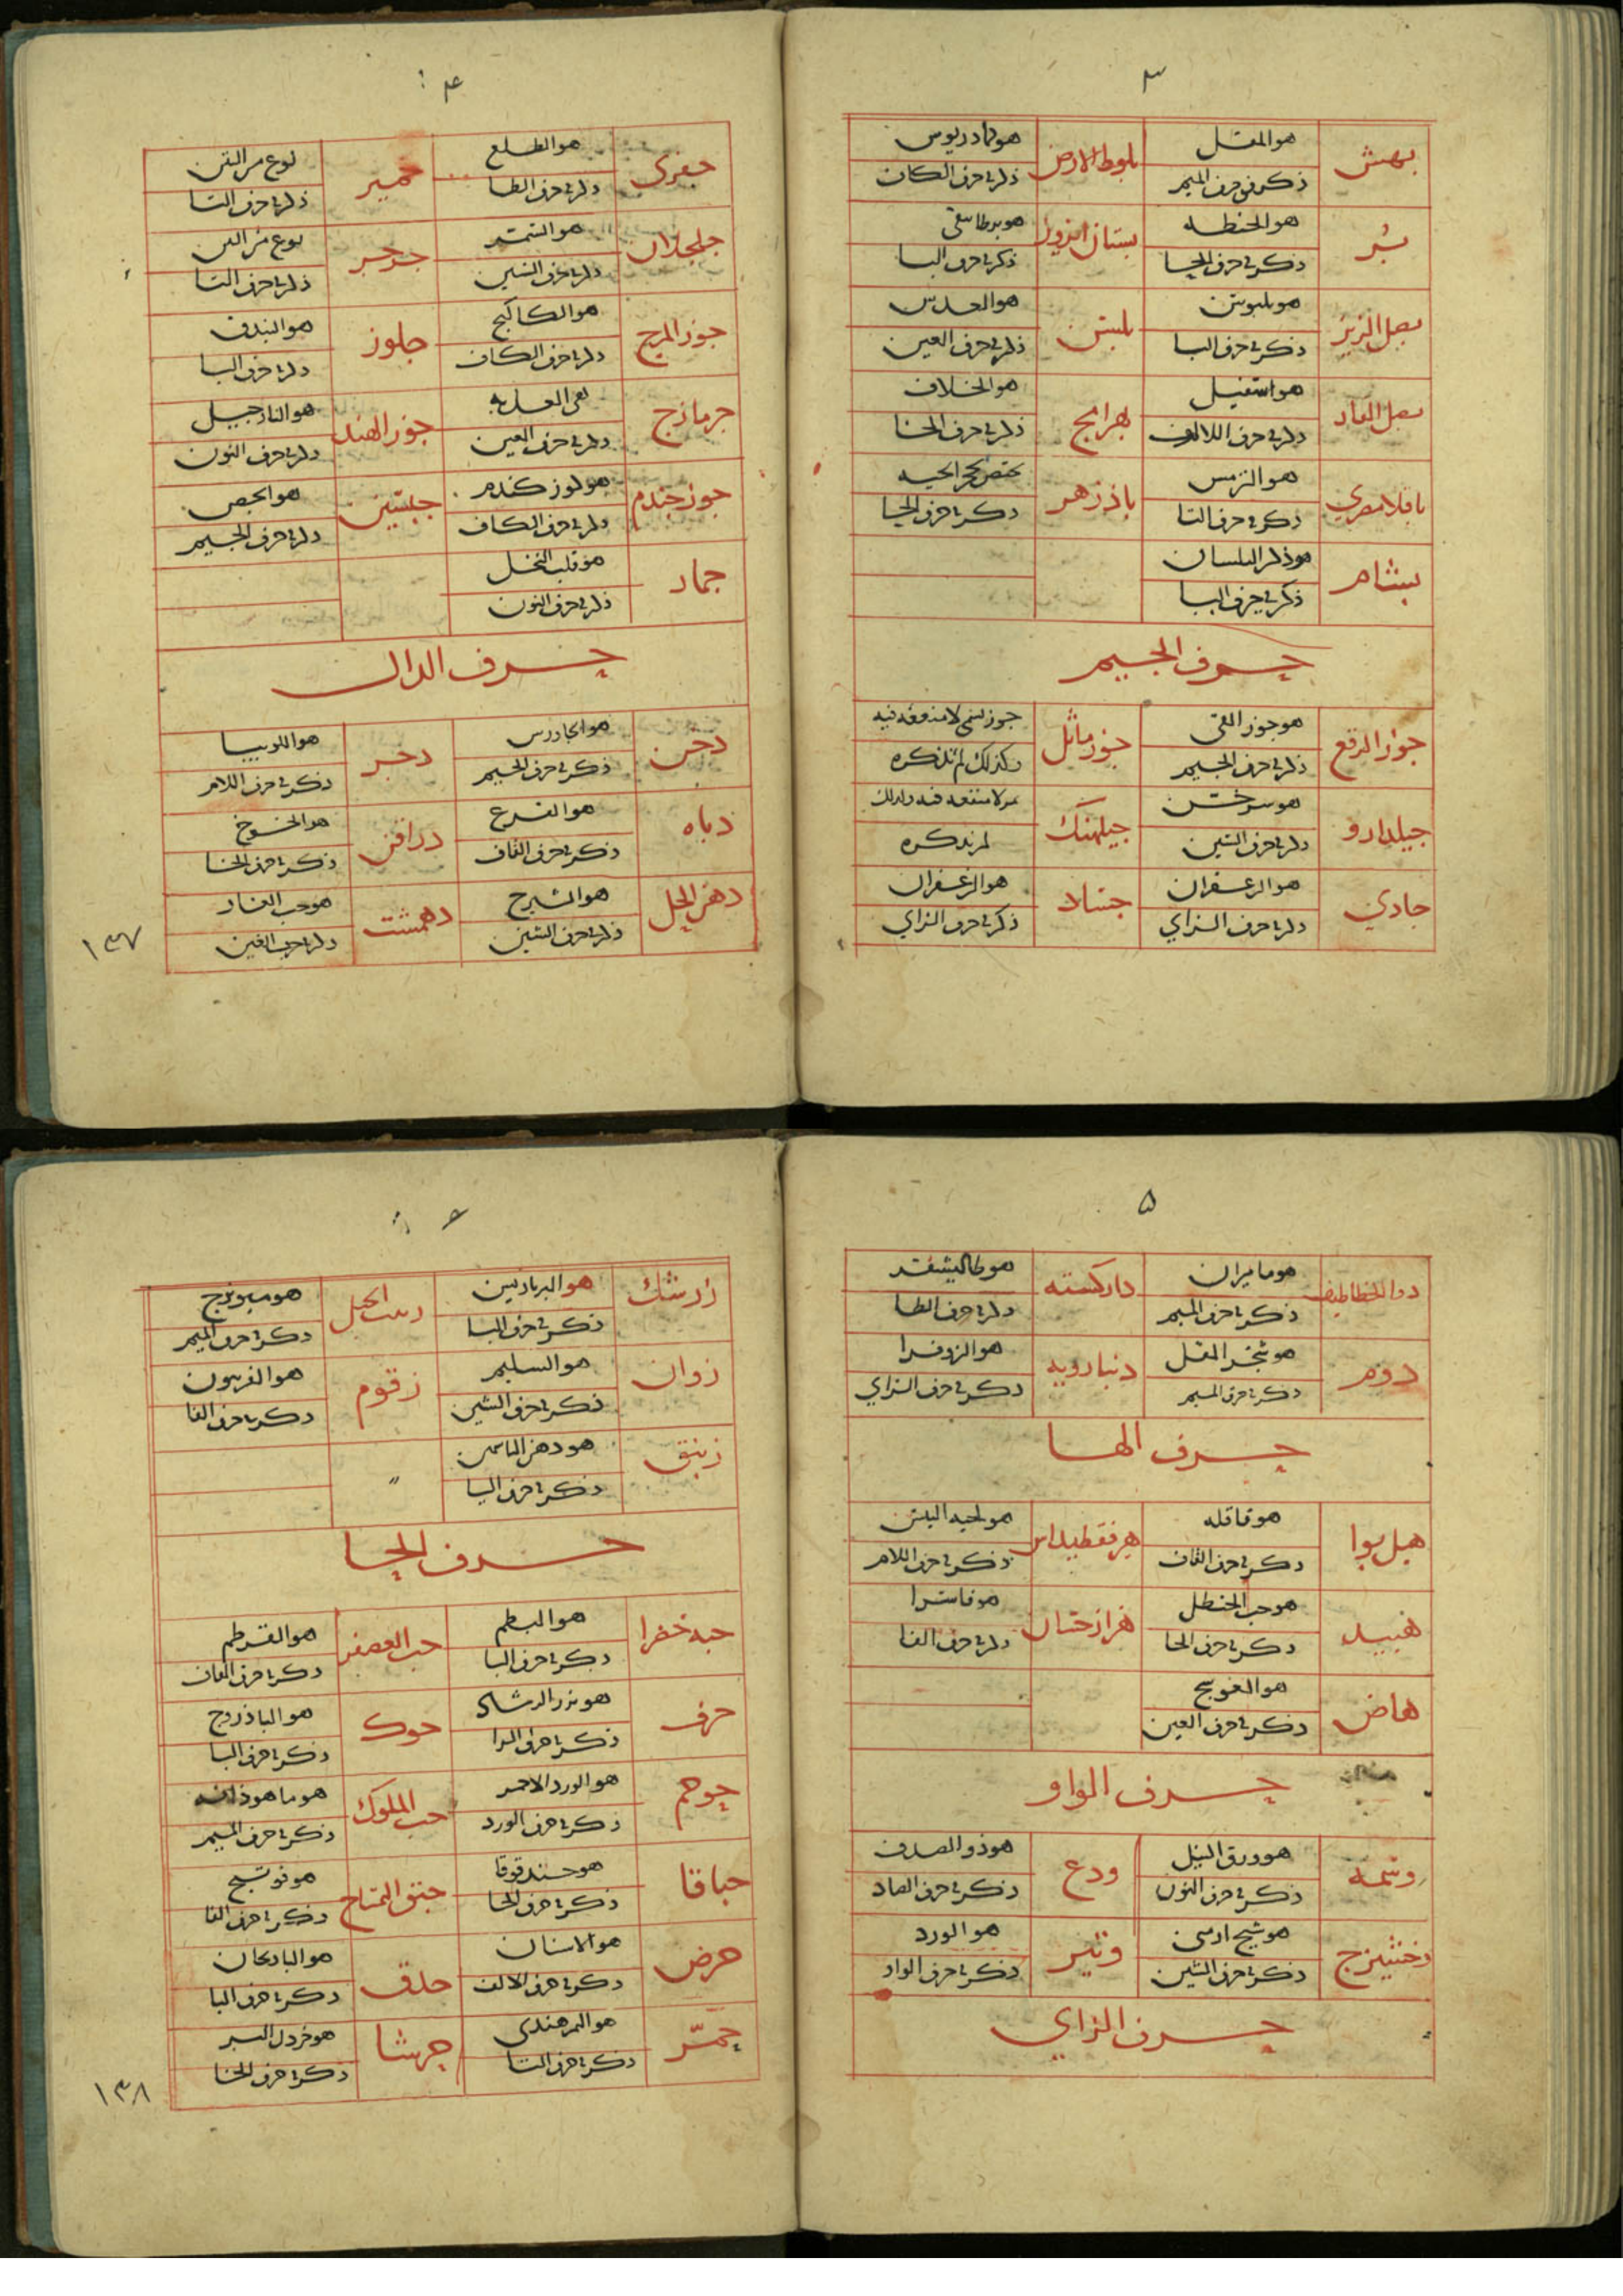 ٣
بهش
هو المقل
ذكر في حرف الميم
بلوط الارض
هو كمادريوس
ذكر في حرف الكاف
بُر
هو الحنطه
ذكر في حرف الحا
بستان ابروز
ذكر في حرف البا
بصل الزيز
هو بلبوس
ذكر في حرف البا
بلسن
هو العدس
ذكر في حرف العين
بصل الفار
هو اسقيل
ذكر في حرف الالف
بهرامج
هو الخلاف
ذكر في حرف الخا
باقلا مصري
هو الترمس
ذكر في حرف التا
باذزهر
ذكر في حرف الحا
بشام
هو ذكر البلسان
ذكر في حرف البا
حرف الجيم
جوز الرقع
هو جوز القي
ذكر في حرف الجيم
جوز ماثل
جوز سمي لا منفعه فيه
وكذلك لم نذكره
جيلدارو
هو سرخس
ذكر في حرف السين
جيلهنك
لا منفعه فيه ولذلك
لم نذكره
جادي
هو الزعفران
ذكر في حرف الزاي
جساد
هو الزعفران
ذكر في حرف الزاي
٤
جفرى
هو الطلع
ذكر في حرف الطا
جميز
نوع من التين
ذكر في حرف التا
جلجلان
هو السمسم
ذكر في حرف السين
نوع من التين
ذكر في حرف التا
جوز المرج
هو الكاكنج
ذكر في حرف الكاف
جلوز
هو البندق
ذكر في حرف البا
جزمازج
ذكر في حرف العين
جوز الهند
هو النارجيل
ذكر في حرف النون
جوز جندم
هو لوز كندم
ذكر في حرف الكاف
جبسين
هو الجص
ذكر في حرف الجيم
جمار
هو قلب النخل
ذكر في حرف النون
حرف الدال
دخن
هو الجاورس
ذكر في حرف الجيم
دجر
هو اللوبيا
ذكر في حرف اللام
دباه
هو القرع
ذكر في حرف القاف
دراقن
هو الخوخ
ذكر في حرف الخا
دهن الحل
هو الشيرج
ذكر في حرف الشين
دهمشت
هو حب الغار
ذكر في حرف الغين
١٣٧
٥
دوا الخطاطيف
هو ماميران
ذكر في حرف الميم
داركسته
هو طاليشفر
ذكر في حرف الطا
دوم
هو شجر المقل
ذكر في حرف الميم
دينارويه
هو الزوفرا
ذكر في حرف الزاي
حرف الها
هيل بوا
هو قاقله
ذكر في حرف القاف
هو لحيه التيس
ذكر في حرف اللام
هبيد
هو حب الحنطل
ذكر في حرف الحا
هزارجشان
هو فاشرا
ذكر في حرف الفا
هاض
هو العوسج
ذكر في حرف العين
حرف الواو
وسمه
هو ورق النيل
ذكر في حرف النون
ودع
هو ذو الصدف
ذكر في حرف الصاد
وخشيزج
هو شيح ارمني
ذكر في حرف الشين
وتير
هو الورد
ذكر في حرف الواو
حرف الزاي
٦
زرشك
هو البرباريس
ذكر في حرف البا
زبيب الجبل
هو ميويزج
ذكر في حرف الميم
زوان
هو الشيلم
ذكر في حرف الشين
زقوم
هو الفربيون
ذكر في حرف الفا
زنبق
هو دهن الياسمين
ذكر في حرف اليا
"
حرف الحا
حبه خضرا
هو البطم
ذكر في حرف البا
حب العصفر
هو القرطم
ذكر في حرف القاف
حرف
هو بزر الرشاد
ذكر في حرف الرا
حوك
هو الباذروج
ذكر في حرف البا
حوجم
هو الورد الاحمر
ذكر في حرف الورد
حب الملوك
هو ماهوذانه
ذكر في حرف الميم
حباقا
هو حندقوقا
ذكر في حرف الحا
حبق التمساح
هو فوتنج
ذكر في حرف الفا
حرض
هو الاشنان
ذكر في حرف الالف
حدق
هو الباذنجان
ذكر في حرف البا
حُمَر
هو التمر هندي
ذكر في حرف التا
حرشا
هو خردل البر
ذكر في حرف الخا
١٣٨